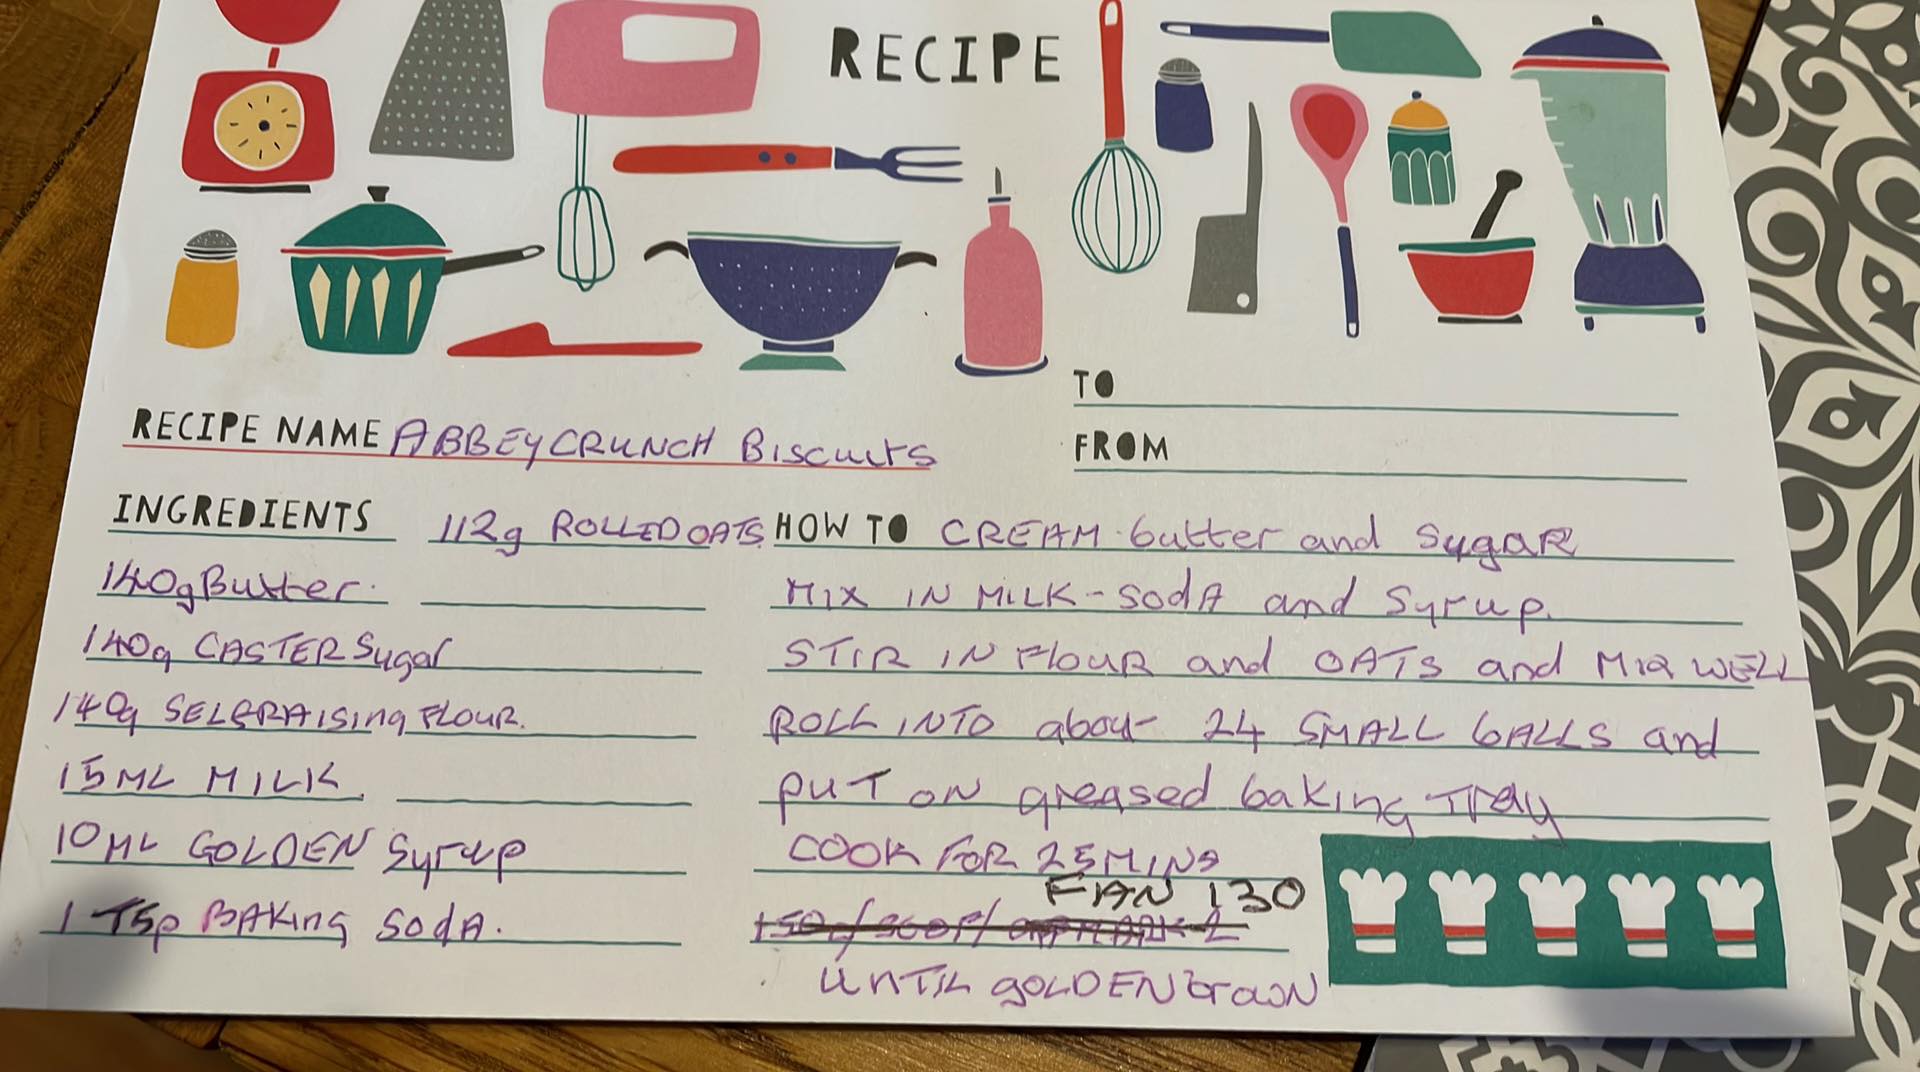 RECIPE
TO
FROM
RECIPE NAME ABBEY CRUNCH BISCUITS
INGREDIENTS 112g ROLLED OATS
140g Butter.
140g CASTER Sugar
140g SELFRAISING FLOUR.
15ML MILK
10ML GOLDEN Syrup
1 TSP BAKING SODA.
HOW TO CREAM butter and Sugar
MIX IN MILK - SODA and Syrup.
STIR IN Flour and OATS and MIX WELL
ROLL INTO about 24 SMALL BALLS and
PUT ON greased baking TRAY
COOK FOR 25 MINS
FAN 130
UNTIL GOLDEN brown